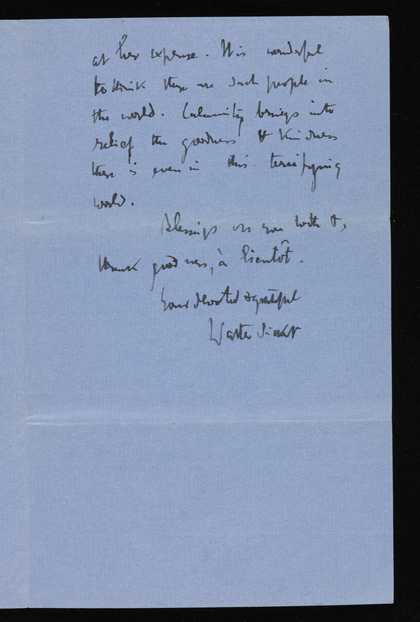 at her expense. It is wonderful
to think there are such people in
the world. Calamity brings into
relief the goodness & kindness
there is even in this terrifying
world.
Blessings on you both &,
thank goodness, à bientôt.
Your devoted & grateful
Walter